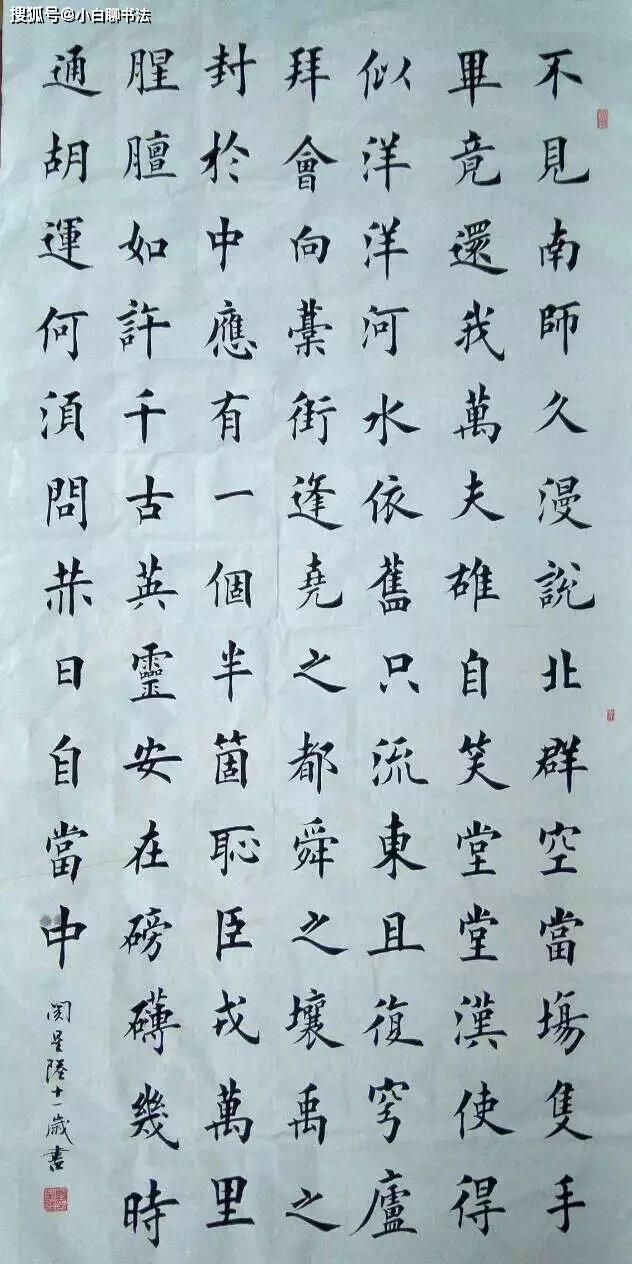 搜狐号@小白聊书法
不見南師久漫說北群空當場隻手
畢竟還我萬夫雄自笑堂堂漢使得
似洋洋河水依舊只流東且復穹廬
拜會向藁街逢堯之都舜之壤禹之
封於中應有一個半箇恥臣戎萬里
腥膻如許千古英靈安在磅礴幾時
通胡運何須問赫日自當中
十一歲書